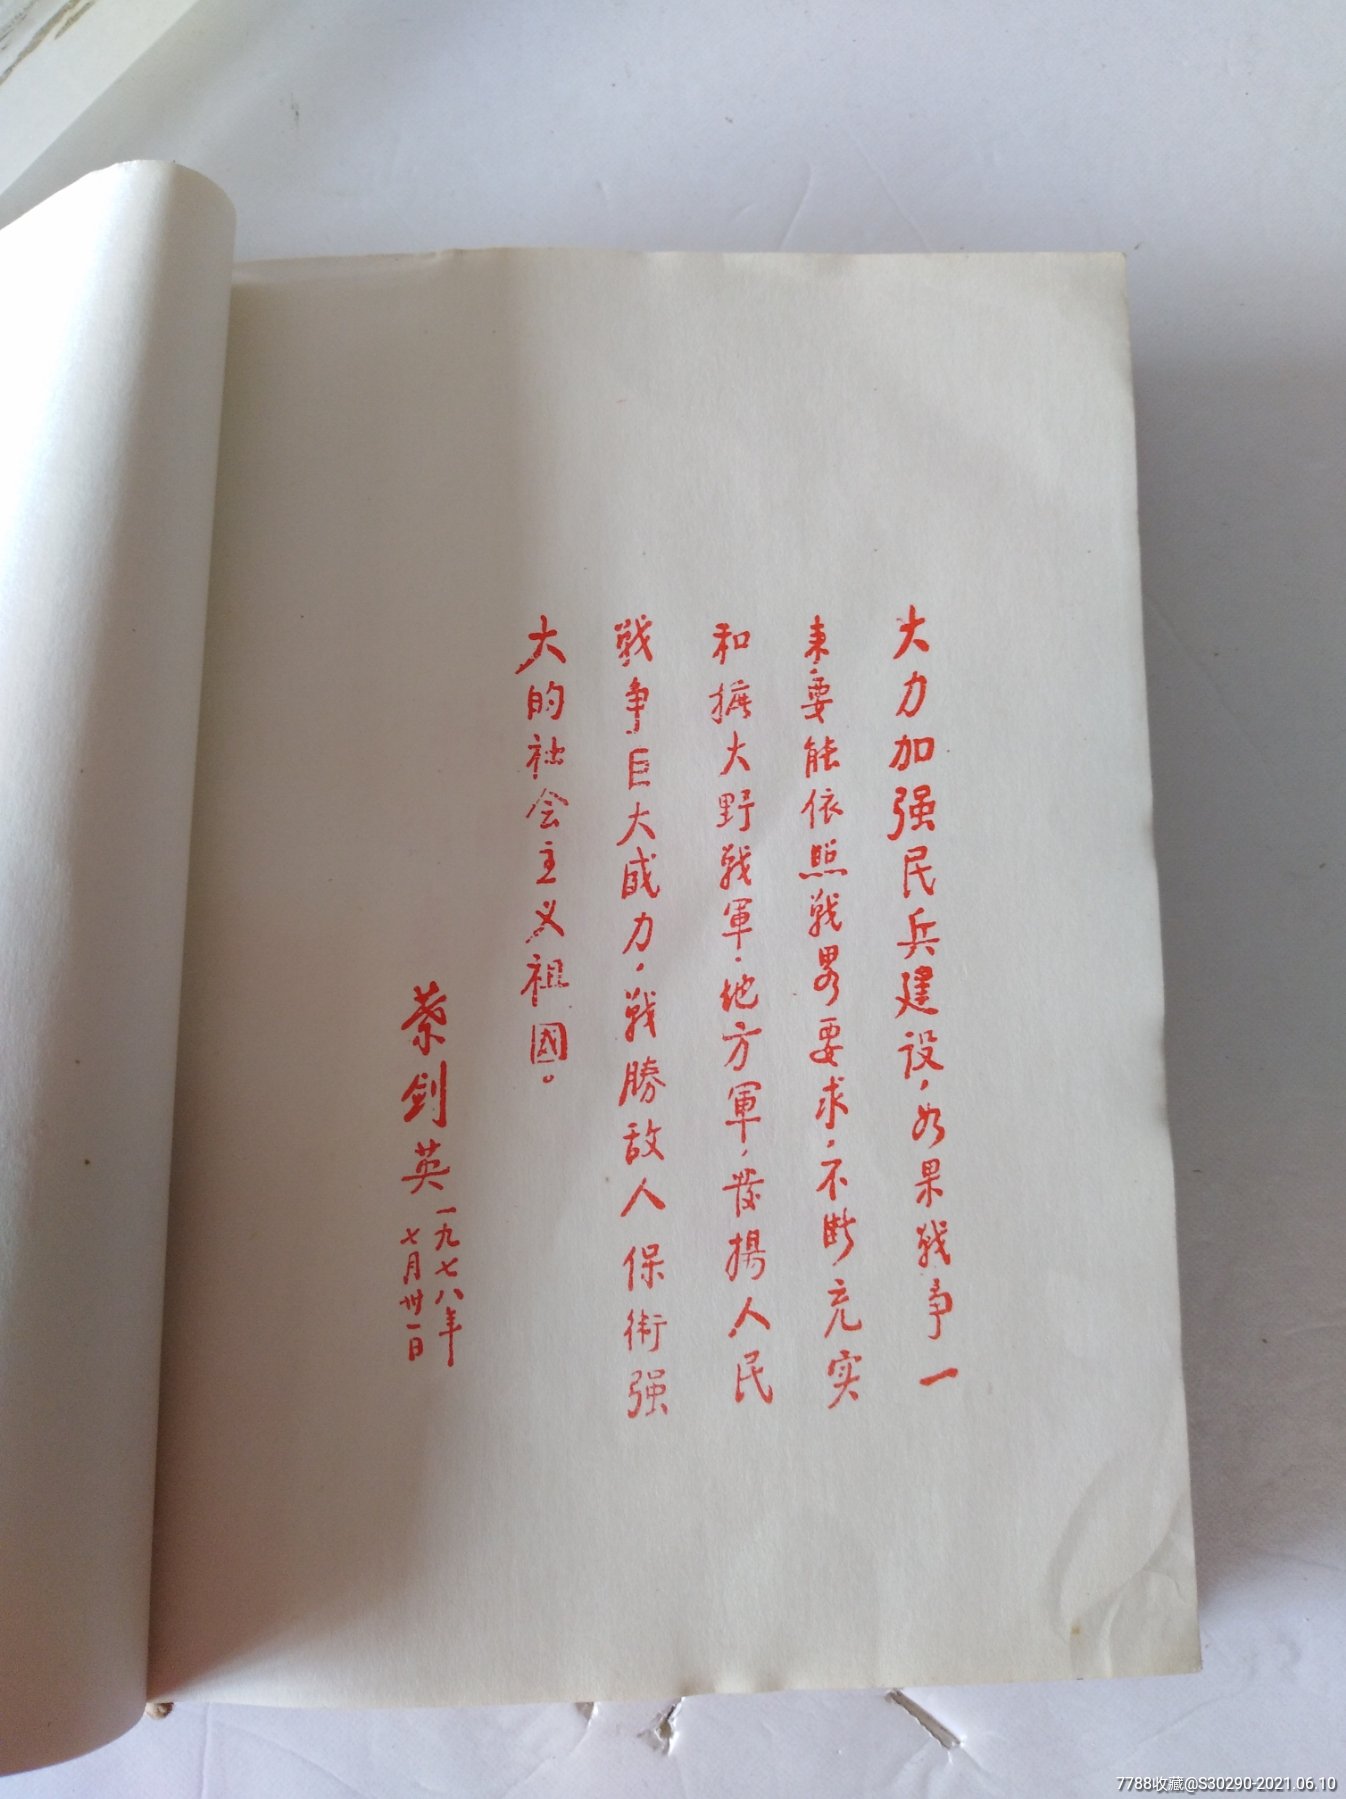 大力加强民兵建设，如果战争一
来，要能依照战畧要求，不断充实
和扩大野战軍、地方軍，發揚人民
战争巨大威力，战勝敌人保衛强
大的社会主义祖國。
葉剑英
一九七八年
七月卅一日
7788收藏@S30290-2021.06.10